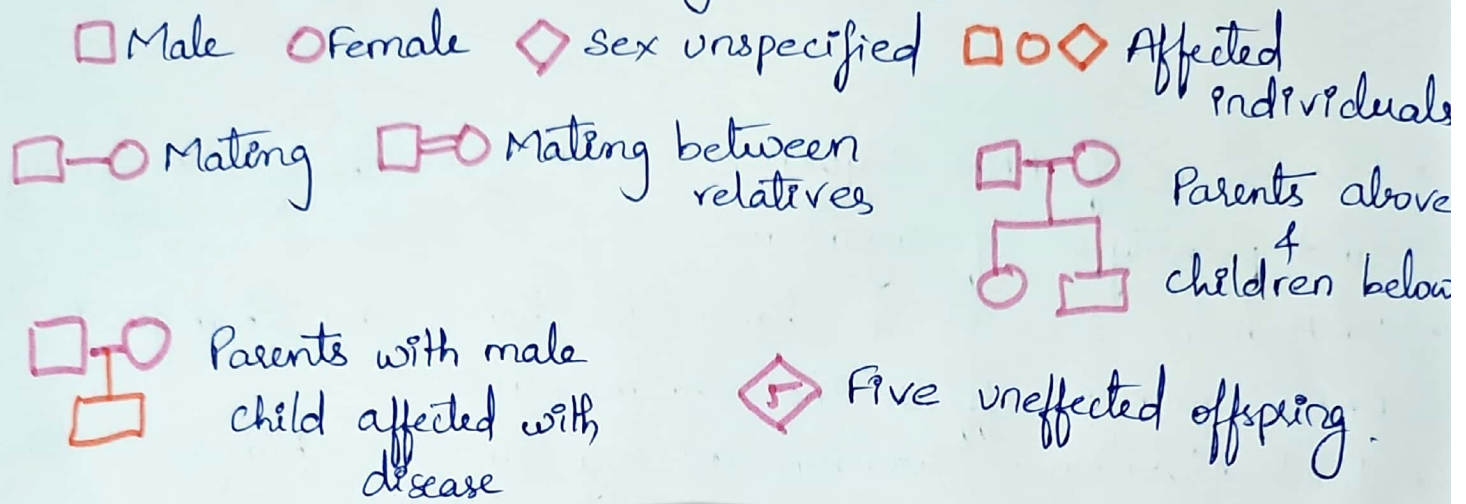 Male Female Sex unspecified Affected
individuals
Mating Mating between
relatives
Parents above
&
children below
Parents with male
child affected with
disease
5 Five uneffected offspring.